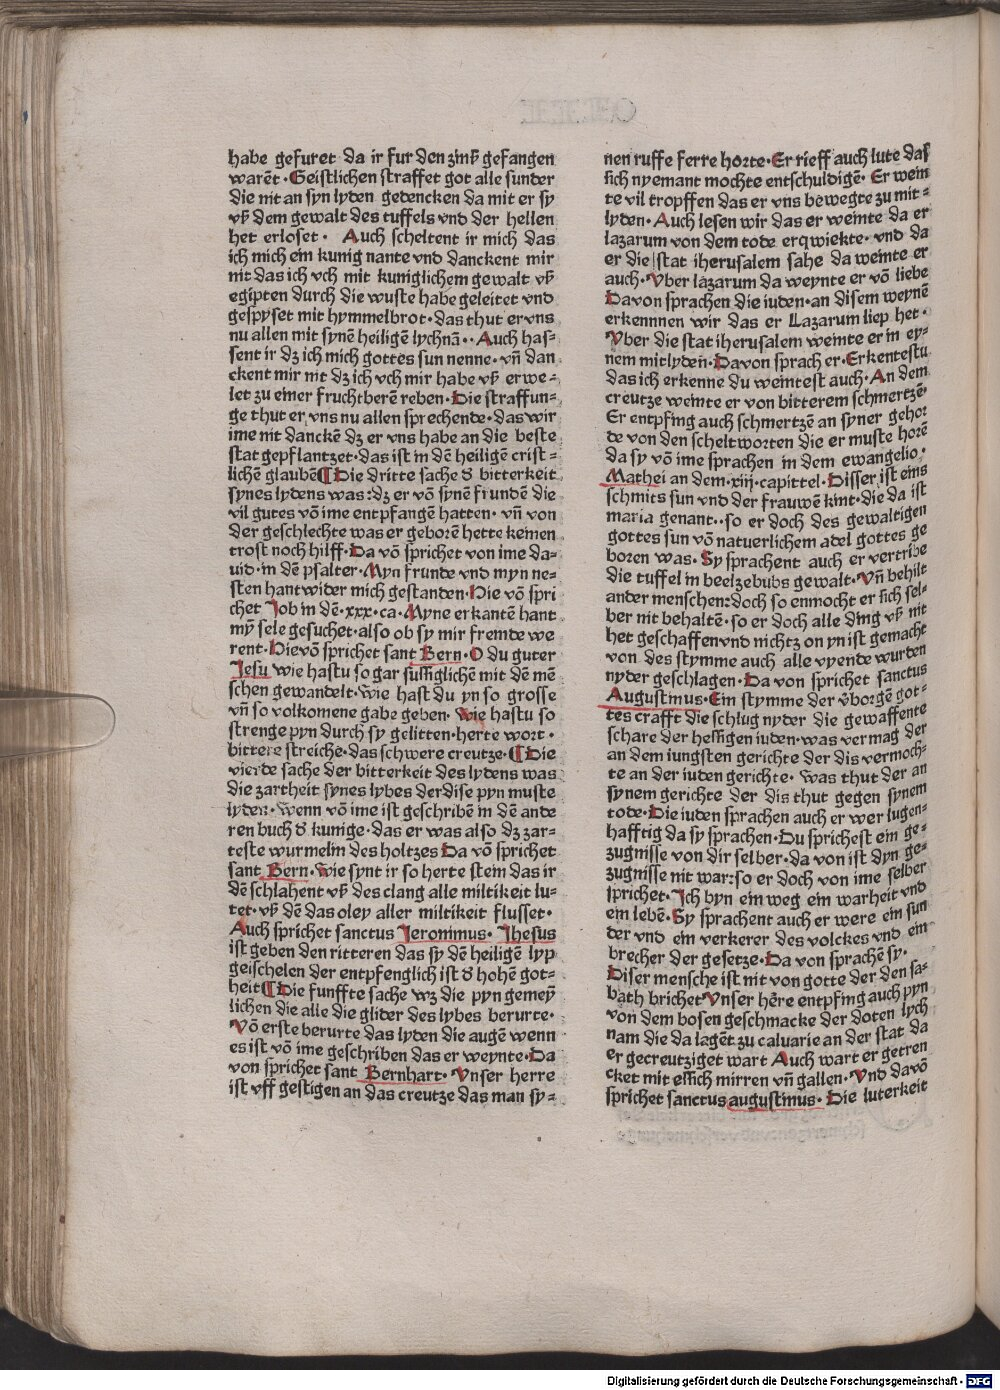 habe gefuret da ir fur den zinß gefangen
warēt · Geistlichen straffet got alle sunder
die nit an syn lyden gedencken da mit er sy
vß dem gewalt des tuffels vnd der hellen
het erloset · Auch scheltent ir mich das
ich mich ein kunig nante vnd danckent mir
nit das ich vch mit kuniglichem gewalt vß
egipten durch die wuste habe geleitet vnd
gespyset mit hymmelbrot · das thut er vns
nu allen mit synē heiligē lychnā · · Auch has-
sent ir dz ich mich gottes sun nenne · vñ dan
ckent mir nit dz ich vch mir habe vß erwe-
let zu einer fruchtberē reben · Die straffun-
ge thut er vns nu allen sprechende · das wir
ime nit danckē dz er vns habe an die beste
stat gepflantzet · das ist in dē heiligē crist-
lichē glaubē ¶ Die dritte sache d̕ bitterkeit
synes lydens was : dz er vō synē frundē die
vil gutes vō ime entpfangē hatten · vñ von
der geschlechte was er geborē hette keinen
trost noch hilff · Da vō sprichet von ime da-
uid · in dē psalter · Myn frunde vnd myn ne-
sten hant wider mich gestanden · Hie vō spri
chet Job in dē · xxx · ca · Myne erkantē hant
mȳ sele gesuchet · also ob sy mir fremde we
rent · Hievō sprichet sant Bern · O du guter
Jesu wie hastu so gar sussiglichē mit dē mē
schen gewandelt · wie hast du yn so grosse
vñ so volkomene gabe geben · Wie hastu so
strenge pyn durch sy gelitten · herte wort ·
bittere streiche · das schwere creutze · ¶ Die
vierde sache der bitterkeit des lydens was
die zartheit synes lybes der dise pyn muste
lyden · Wenn vō ime ist geschribē in dē ande
ren buch d̕ kunige · das er was also dz zar-
teste wurmelin des holtzes Da vō sprichet
sant Bern · Wie synt ir so herte stein das ir
dē schlahent vß des clang alle miltikeit lu-
tet · vß dē das oley aller miltikeit flusset ·
Auch sprichet sanctus Jeronimus · Jhesus
ist geben den ritteren das sy dē heiligē lyp
geischelen der entpfenglich ist d̕ hohē got-
heit ¶ Die funffte sache wz die pyn gemeȳ
lichen die alle die glider des lybes berurte ·
Vō erste berurte das lyden die augē wenn
es ist vō ime geschriben das er weynte · Da
von sprichet sant Bernhart · Vnser herre
ist vff gestigen an das creutze das man sy-
nen ruffe ferre horte · Er rieff auch lute das
sich nyemant mochte entschuldigē · Er wein
te vil tropffen das er vns bewegte zu mit-
lyden · Auch lesen wir das er weinte da er
lazarum von dem tode erqwiekte · vnd da
er die stat iherusalem sahe da weinte er
auch · Vber lazarum da weynte er vō liebe
Davon sprachen die iuden · an disem weynē
erkennnen wir das er Llazarum liep het ·
Vber die stat iherusalem weinte er in ey-
nem mitlydē · Davon sprach er · Erkentestu
das ich erkenne du weintest auch · An dem
creutze weinte er von bitterem schmertzē ·
Er entpfing auch schmertzē an syner gehor
de von den scheltworten die er muste horē
da sy vō ime sprachen in dem ewangelio ·
Mathei an dem · xiij · capittel · Disser ist eins
schmits sun vnd der frauwē kint · die da ist
maria genant · · so er doch des gewaltigen
gottes sun vō natuerlichem adel gottes ge
boren was · Sy sprachent auch er vertribe
die tuffel in beelzebubs gewalt · Vñ behilt
ander menschen : doch so enmocht er sich sel-
ber nit behaltē · so er doch alle ding vß nit
het geschaffen vnd nichtz on yn ist gemacht
von des stymme auch alle vyende wurden
nyder geschlagen · Da von sprichet sanctus
Augustinus · Ein stymme der v̄borgē got-
tes crafft die schlug nyder die gewaffente
schare der hessigen iuden · was vermag der
an dem iungsten gerichte der dis vermoch-
te an der iuden gerichte · was thut der an
synem gerichte der dis thut gegen synem
tode · Die iuden sprachen auch er wer lugen-
hafftig da sy sprachen · Du sprichest ein ge-
zugnisse von dir selber · da von ist dyn ge-
zugnisse nit war : so er doch von ime selber
sprichet · Jch byn ein weg ein warheit vnd
ein lebē · Sy sprachent auch er were ein sun
der vnd ein verkerer des volckes vnd ein
brecher der gesetze · Da von sprachē sy ·
Diser mensche ist nit von gotte der den sa-
bath brichet Vnser hēre entpfing auch pyn
von dem bosen geschmacke der doten lych
nam die da lagēt zu caluarie an der stat da
er gecreutziget wart Auch wart er getren
cket mit essich mirren vñ gallen · Vnd davō
sprichet sanctus augustinus · Die luterkeit
Digitalisierung gefördert durch die Deutsche Forschungsgemeinschaft - DFG